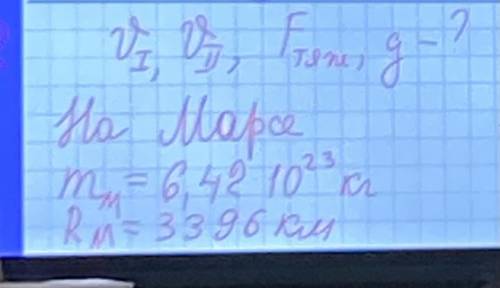 υ_I, υ_II, F_тяж, g - ?
На Марсе
m_м = 6,42 10²³ кг
R_м = 3396 км